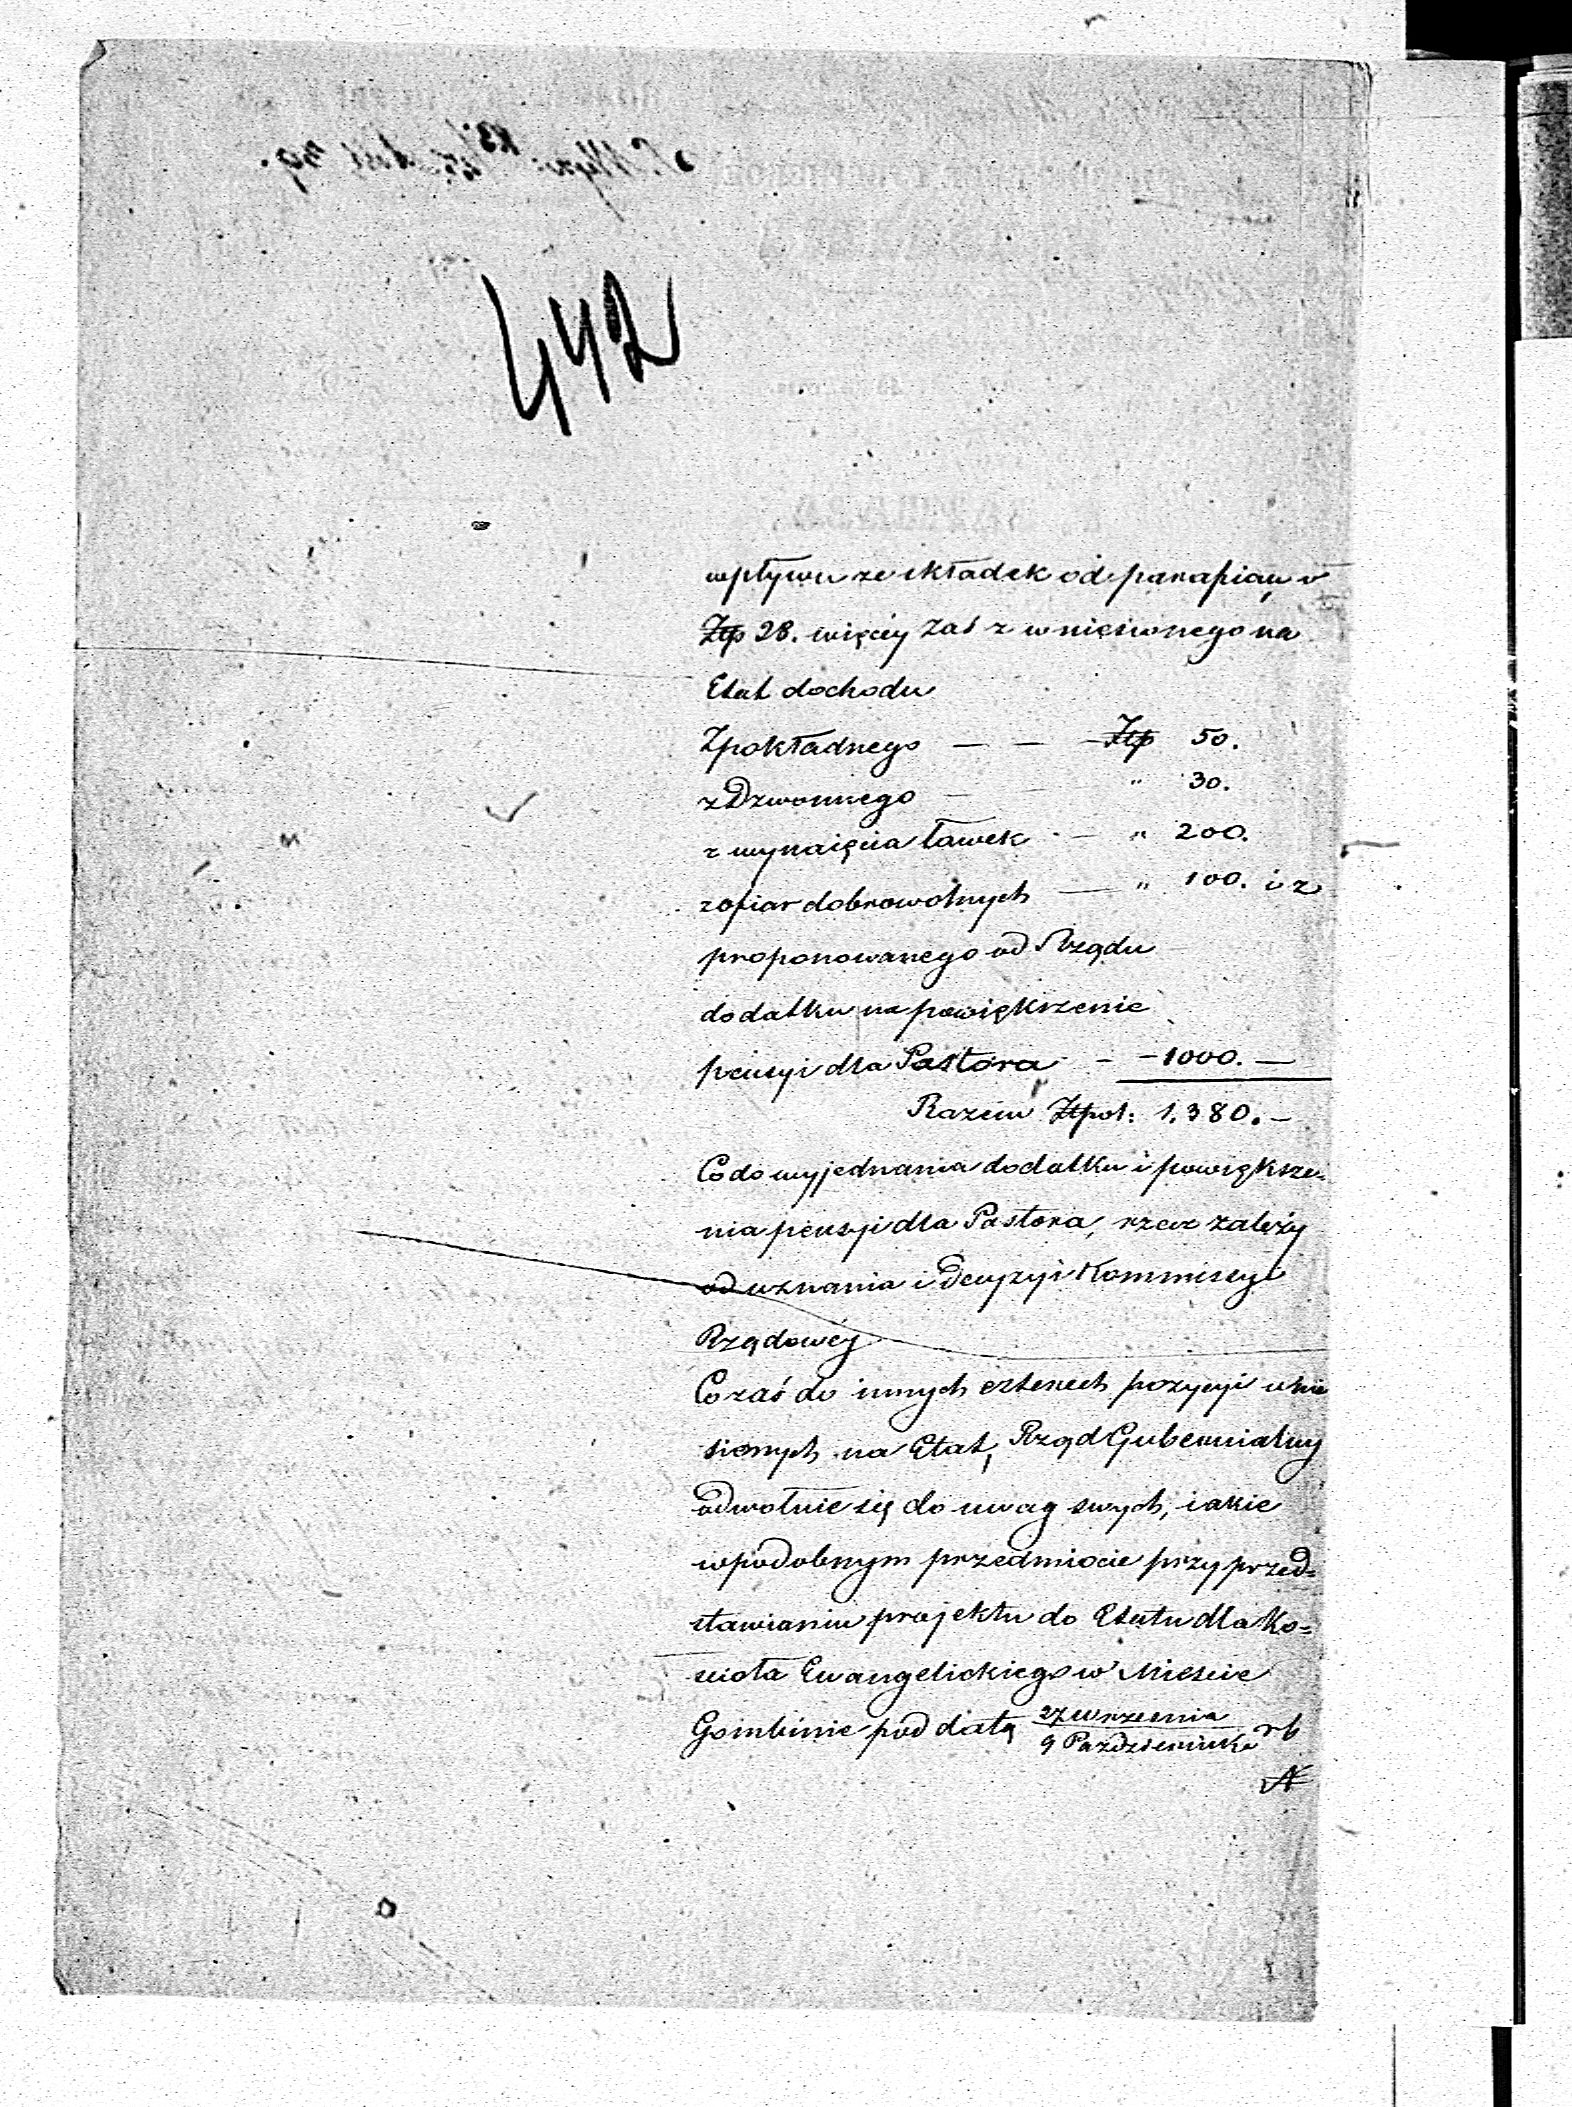 442
wpływu ze składek od parafian o
Złp 28. więcéy zaś z wniesionego na
Etat dochodu
Z pokładnego — — Złp 50.
z Dzwonnego — " 30.
z wynaięcia ławek — " 200.
z ofiar dobrowolnych — " 100. i z
proponowanego od Rządu
dodatku na powiększenie
pensyi dla Pastora — — 1000. —
Razem Złpol: 1,380. —
Co do wyjednania dodatku i powiększe-
nia pensyi dla Pastora, rzecz zależy
od uznania i Decyzyi Kommissyi
Rządowéj
Co zaś do innych czterech pozycyi wnie
sionych na Etat, Rząd Gubernialny
odwołuie się do uwag swych, iakie
w podobnym przedmiocie przy przed=
stawianiu projektu do Etatu dla Ko=
scioła Ewangelickiego w Miescie
Gombinie pod datą 27 Wrzesnia
9 Pazdziernika rb